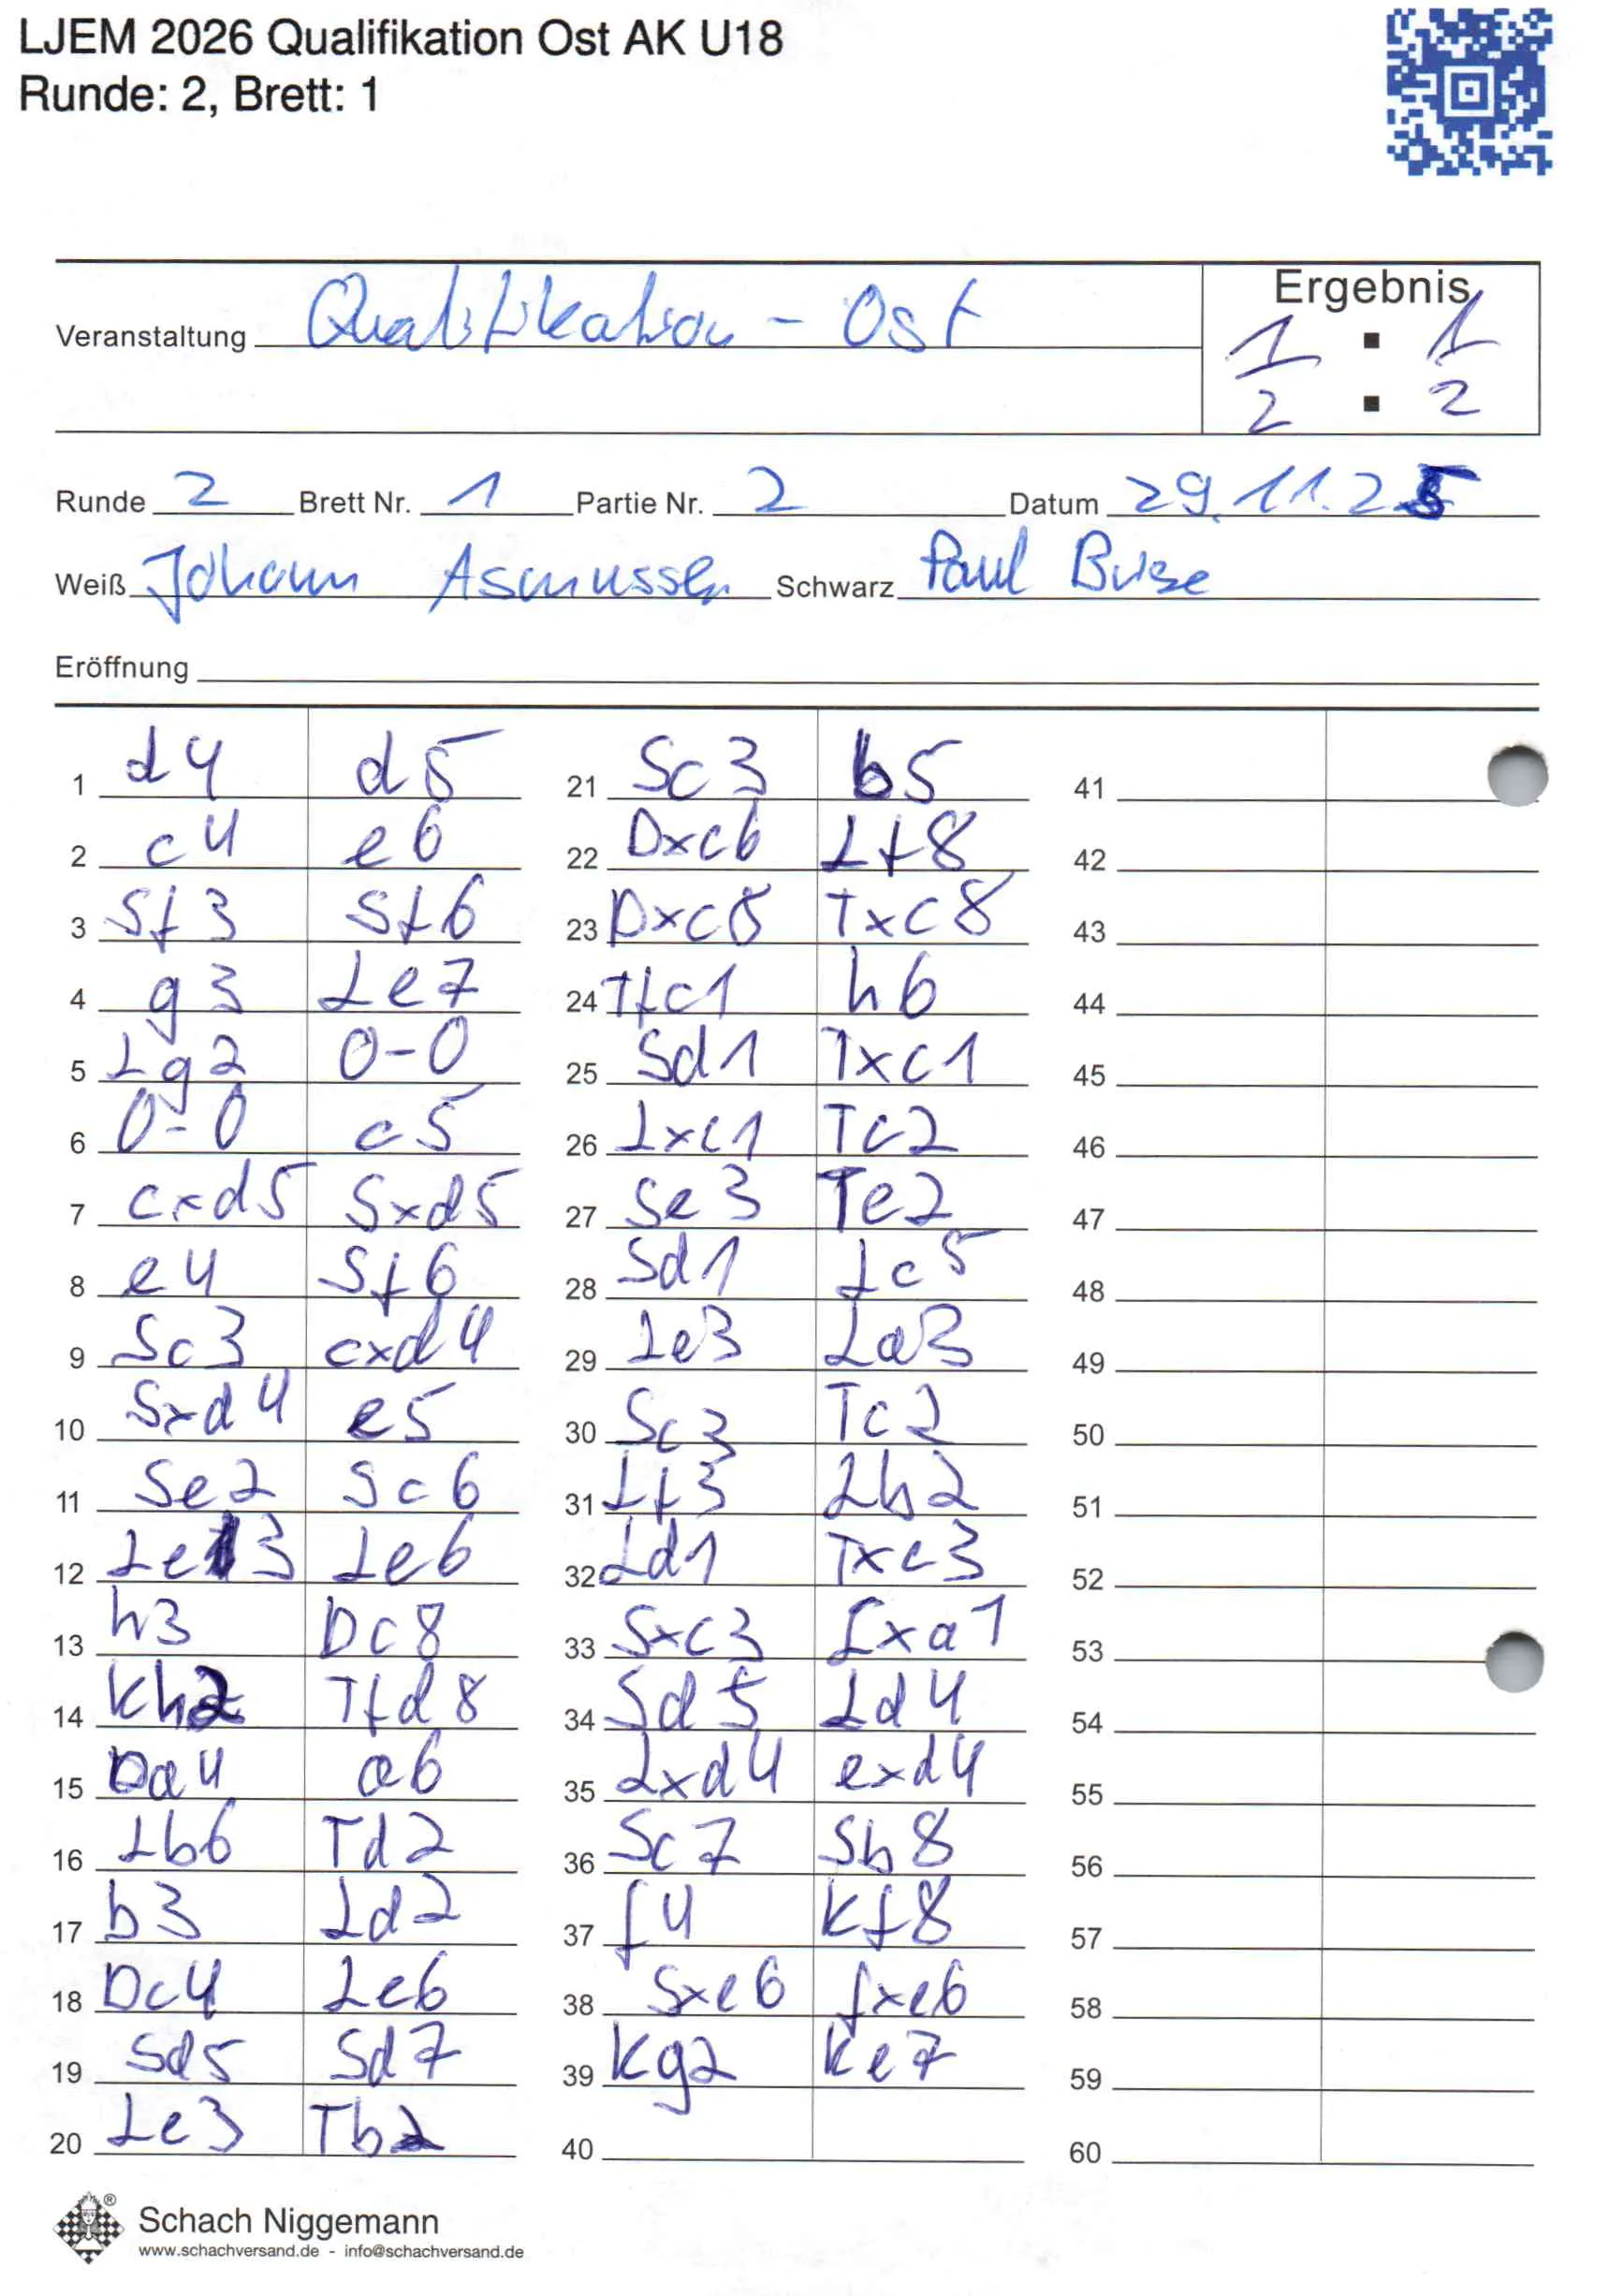 LJEM 2026 Qualifikation Ost AK U18
Runde: 2, Brett: 1
Ergebnis
Veranstaltung Qualifikation - Ost
1/2 : 1/2
Runde 2 Brett Nr. 1 Partie Nr. 2 Datum 29.11.25
Weiß Johann Asmussen Schwarz Paul
Eröffnung
1 d4 d5 21 Sc3 b5 41
2 c4 e6 22 Dxc6 Lf8 42
3 Sf3 Sf6 23 Dxc8 Txc8 43
4 g3 Le7 24 Tfc1 h6 44
5 Lg2 0-0 25 Sd1 Txc1 45
6 0-0 c5 26 Lxc1 Tc2 46
7 cxd5 Sxd5 27 Se3 Te2 47
8 e4 Sf6 28 Sd1 Lc5 48
9 Sc3 cxd4 29 Le3 La3 49
10 Sxd4 e5 30 Sc3 Tc2 50
11 Se2 Sc6 31 Lf3 Lb2 51
12 Le3 Le6 32 Ld1 Txc3 52
13 h3 Dc8 33 Sxc3 Lxa1 53
14 Kh2 Tfd8 34 Sd5 Ld4 54
15 Da4 a6 35 Lxd4 exd4 55
16 Lb6 Td2 36 Sc7 Sb8 56
17 b3 Ld2 37 f4 Kf8 57
18 Dc4 Le6 38 Sxe6 fxe6 58
19 Sd5 Sd7 39 Kg2 Ke7 59
20 Le3 Tb2 40 60
®
Schach Niggemann
www.schachversand.de - info@schachversand.de